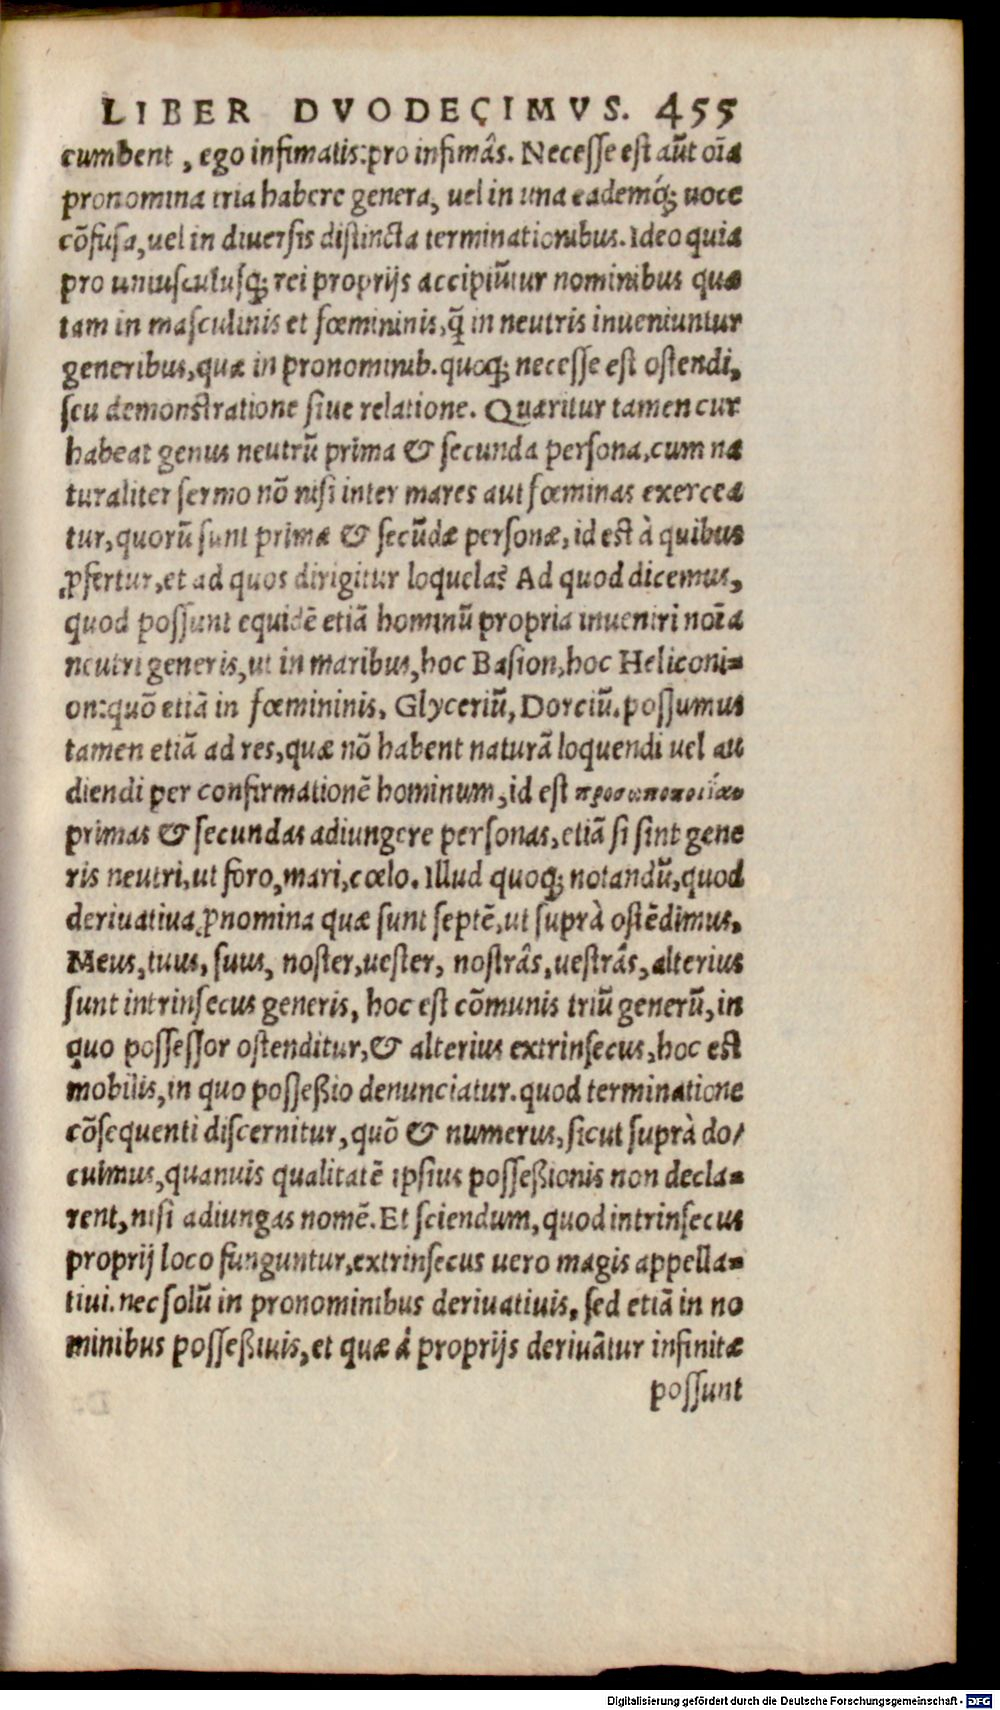 LIBER DVODECIMVS. 455
cumbent, ego infimatis: pro infimâs. Necesse est aũt oĩa
pronomina tria habere genera, uel in una eademq́; uoce
cõfusa, uel in diuersis distincta terminationibus. Ideo quia
pro uniusculusq; rei proprijs accipiũtur nominibus quæ
tam in masculinis et fœmininis, q̃ in neutris inueniuntur
generibus, quæ in pronominib. quoq; necesse est ostendi,
seu demonstratione siue relatione. Quæritur tamen cur
habeat genus neutrũ prima & secunda persona, cum na
turaliter sermo nõ nisi inter mares aut fœminas exercea
tur, quorũ sunt primæ & secũdæ personæ, id est à quibus
ꝓfertur, et ad quos dirigitur loquela? Ad quod dicemus,
quod possunt equidẽ etiã hominũ propria inueniri noĩa
neutri generis, ut in maribus, hoc Basion, hoc Heliconi-
on: quõ etiã in fœmininis, Glyceriũ, Dorciũ. possumus
tamen etiã ad res, quæ nõ habent naturã loquendi uel au
diendi per confirmationẽ hominum, id est
primas & secundas adiungere personas, etiã si sint gene
ris neutri, ut foro, mari, cœlo. Illud quoq; notandũ, quod
deriuatiua ꝓnomina quæ sunt septẽ, ut suprà ostẽdimus.
Meus, tuus, suus, noster, uester, nostrâs, uestrâs, alterius
sunt intrinsecus generis, hoc est cõmunis triũ generũ, in
quo possessor ostenditur, & alterius extrinsecus, hoc est
mobilis, in quo posseßio denunciatur. quod terminatione
cõsequenti discernitur, quõ & numerus, sicut suprà do/
cuimus, quanuis qualitatẽ ipsius posseßionis non decla-
rent, nisi adiungas nomẽ. Et sciendum, quod intrinsecus
proprij loco funguntur, extrinsecus uero magis appella-
tiui. nec solũ in pronominibus deriuatiuis, sed etiã in no
minibus posseßiuis, et quæ à proprijs deriuãtur infinitæ
possunt
Digitalisierung gefördert durch die Deutsche Forschungsgemeinschaft - DFG